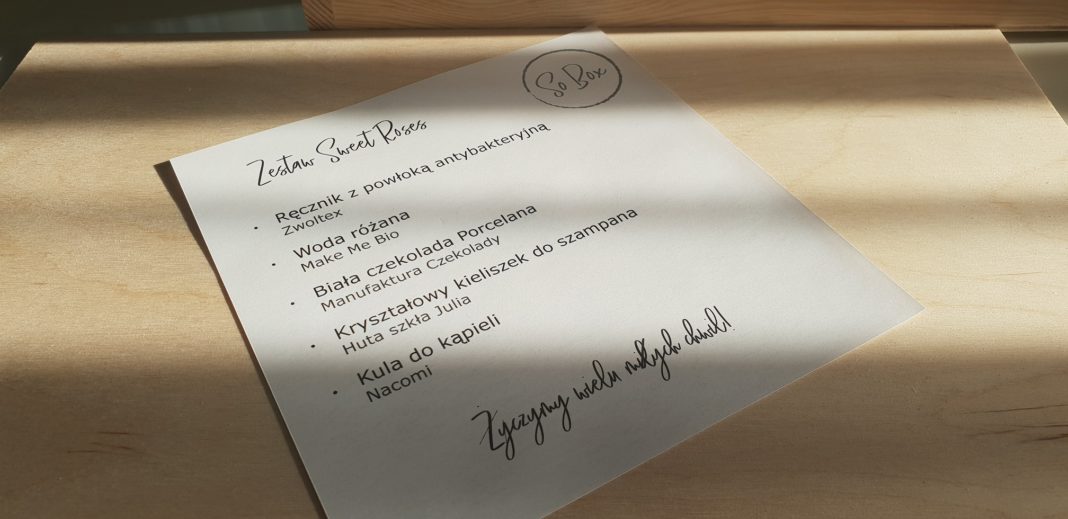 So Box
Zestaw Sweet Roses
• Ręcznik z powłoką antybakteryjną
Zwoltex
• Woda różana
Make Me Bio
• Biała czekolada Porcelana
Manufaktura Czekolady
• Kryształowy kieliszek do szampana
Huta szkła Julia
• Kula do kąpieli
Nacomi
Życzymy wielu miłych chwil!